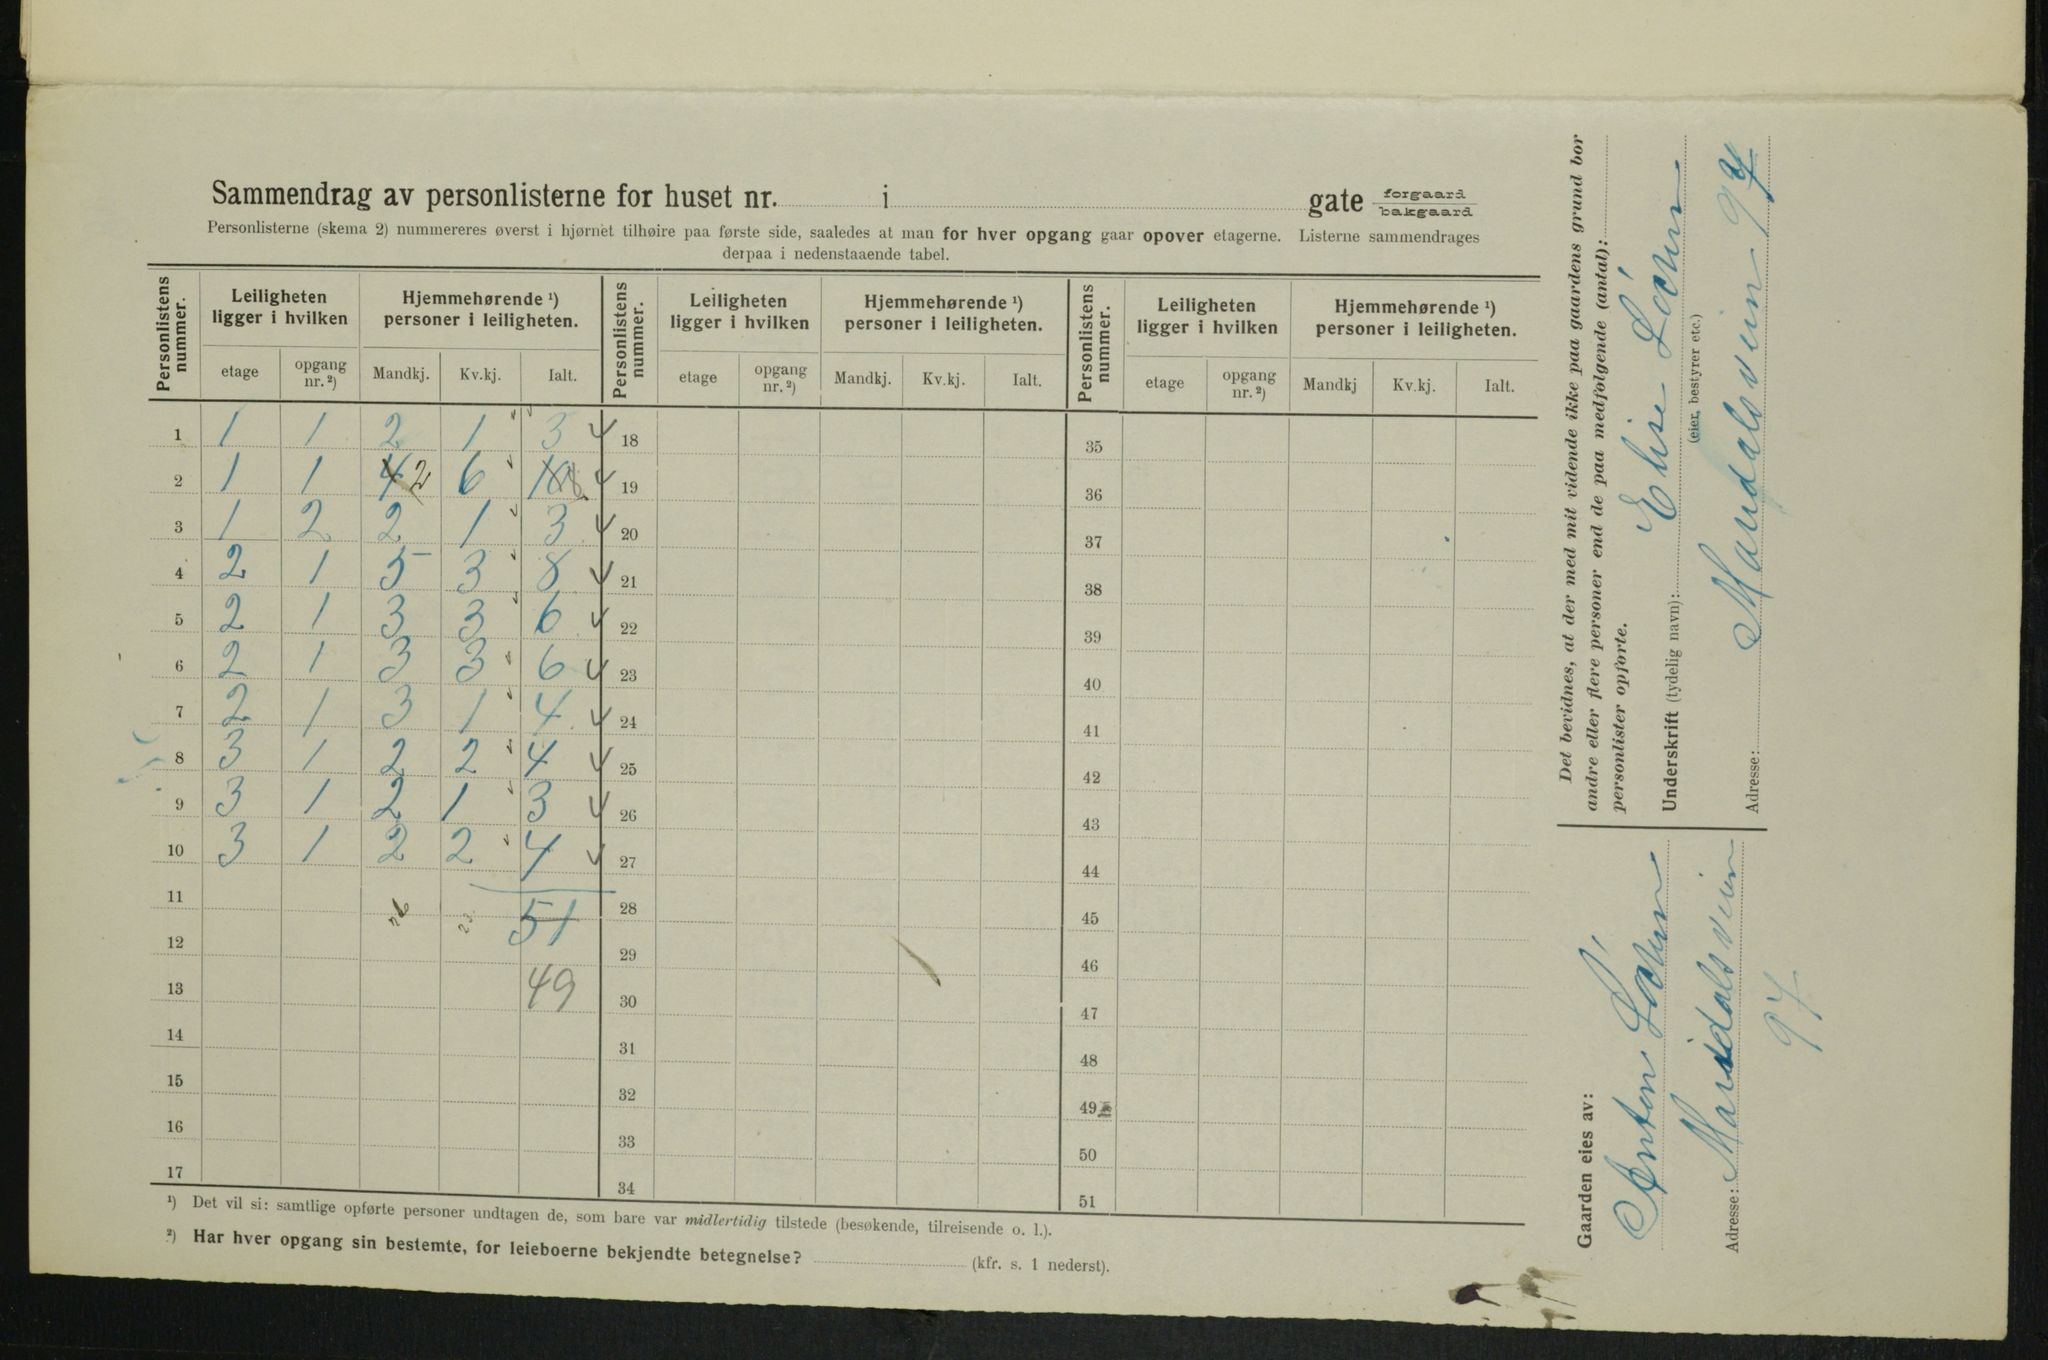 Sammendrag av personlisterne for huset nr. i gate forgaard bakgaard
Personlisterne (skema 2) nummereres øverst i hjørnet tilhøire paa første side, saaledes at man for hver opgang gaar opover etagerne. Listerne sammendrages
derpaa i nedenstaaende tabel.
Personlistens nummer. Leiligheten ligger i hvilken Hjemmehørende ¹) personer i leiligheten. Personlistens nummer. Leiligheten ligger i hvilken Hjemmehørende ¹) personer i leiligheten. Personlistens nummer. Leiligheten ligger i hvilken Hjemmehørende ¹) personer i leiligheten.
etage opgang nr. ²) Mandkj. Kv.kj. Ialt. etage opgang nr. ²) Mandkj. Kv.kj. Ialt. etage opgang nr. ²) Mandkj Kv.kj. Ialt.
1 1 1 2 1 3 18 35
2 1 1 4 2 6 19 36
3 1 2 2 1 3 20 37
4 2 1 5 3 8 21 38
5 2 1 3 3 6 22 39
6 2 1 3 3 6 23 40
7 2 1 3 1 4 24 41
8 3 1 2 2 4 25 42
9 3 1 2 1 3 26 43
10 3 1 2 2 4 27 44
11 26 23 51 28 45
12 29 46
13 49 30 47
14 31 48
15 32 49
16 33 50
17 34 51
¹) Det vil si: samtlige opførte personer undtagen de, som bare var midlertidig tilstede (besøkende, tilreisende o. l.).
²) Har hver opgang sin bestemte, for leieboerne bekjendte betegnelse? (kfr. s. 1 nederst).
Det bevidnes, at der med mit vidende ikke paa gaardens grund bor
andre eller flere personer end de paa medfølgende (antal):
personlister opførte.
Underskrift (tydelig navn): Elise
(eier, bestyrer etc.)
Adresse: Maridalsveien 94
Gaarden eies av:
Anton
Adresse: Maridalsveien
94